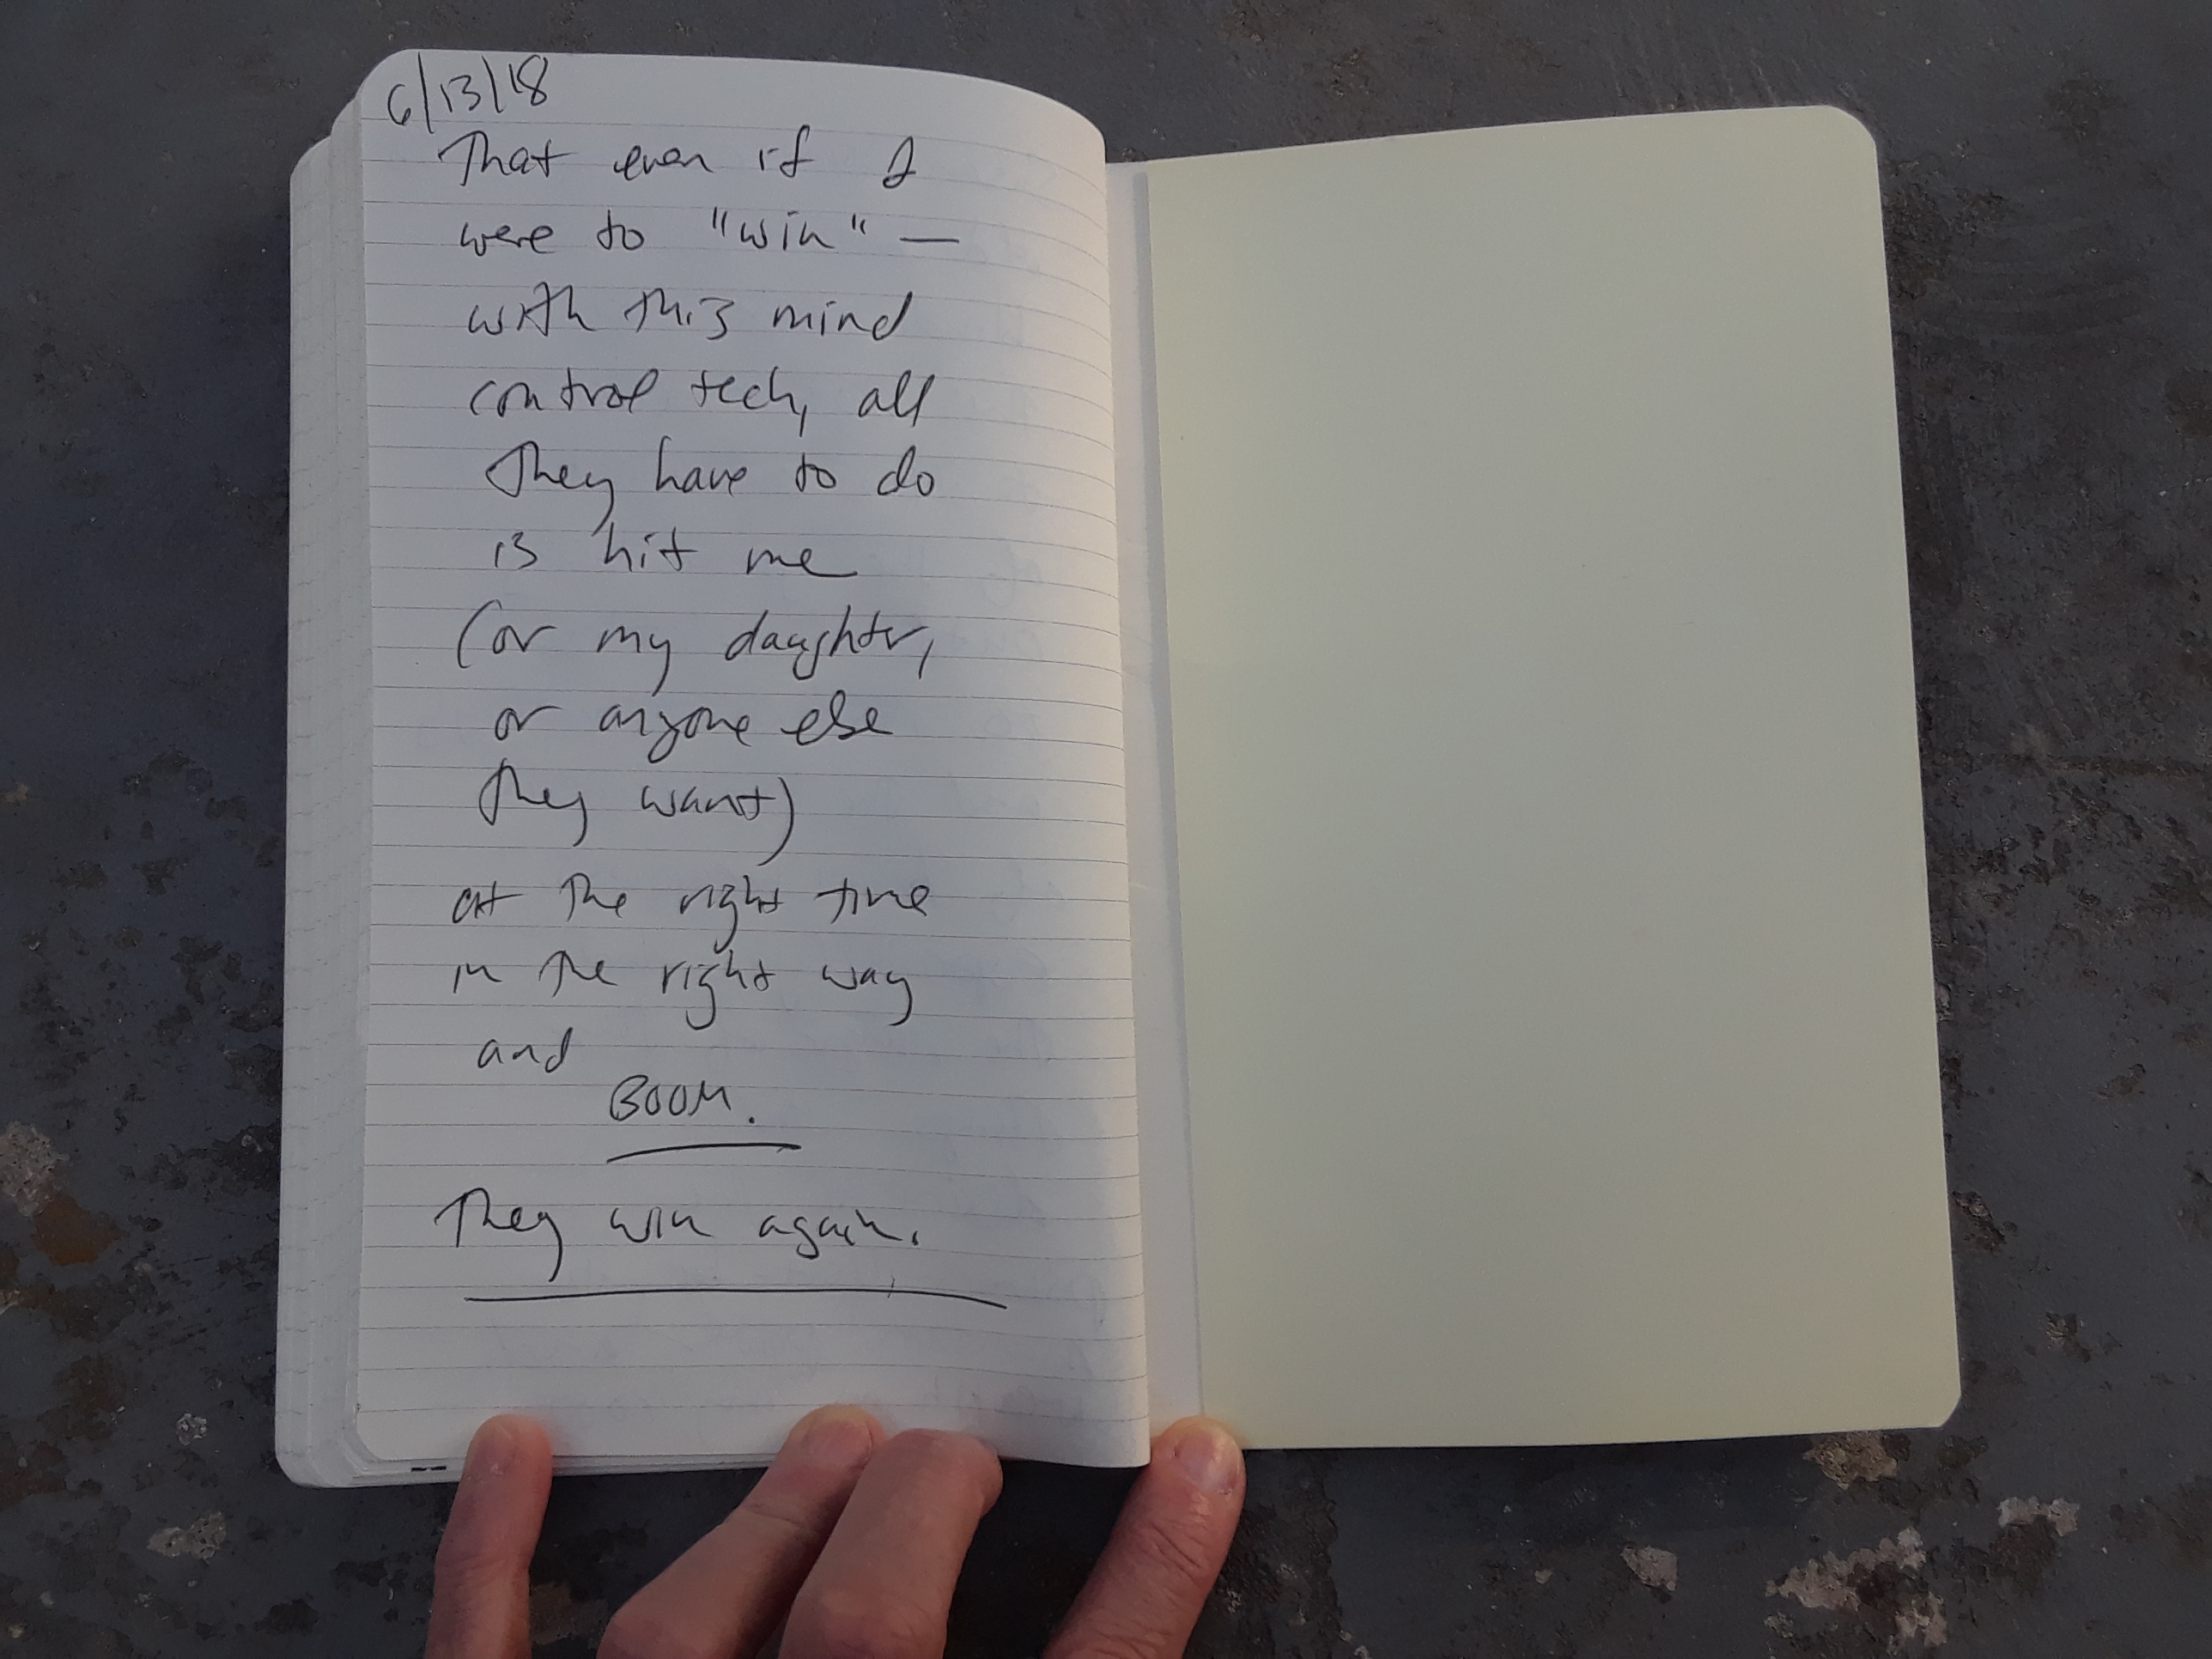 6/13/18
That even if I
were to "win" —
with this mind
control tech, all
they have to do
is hit me
(or my daughter,
or anyone else
they want)
at the right time
in the right way
and
BOOM.
They win again.